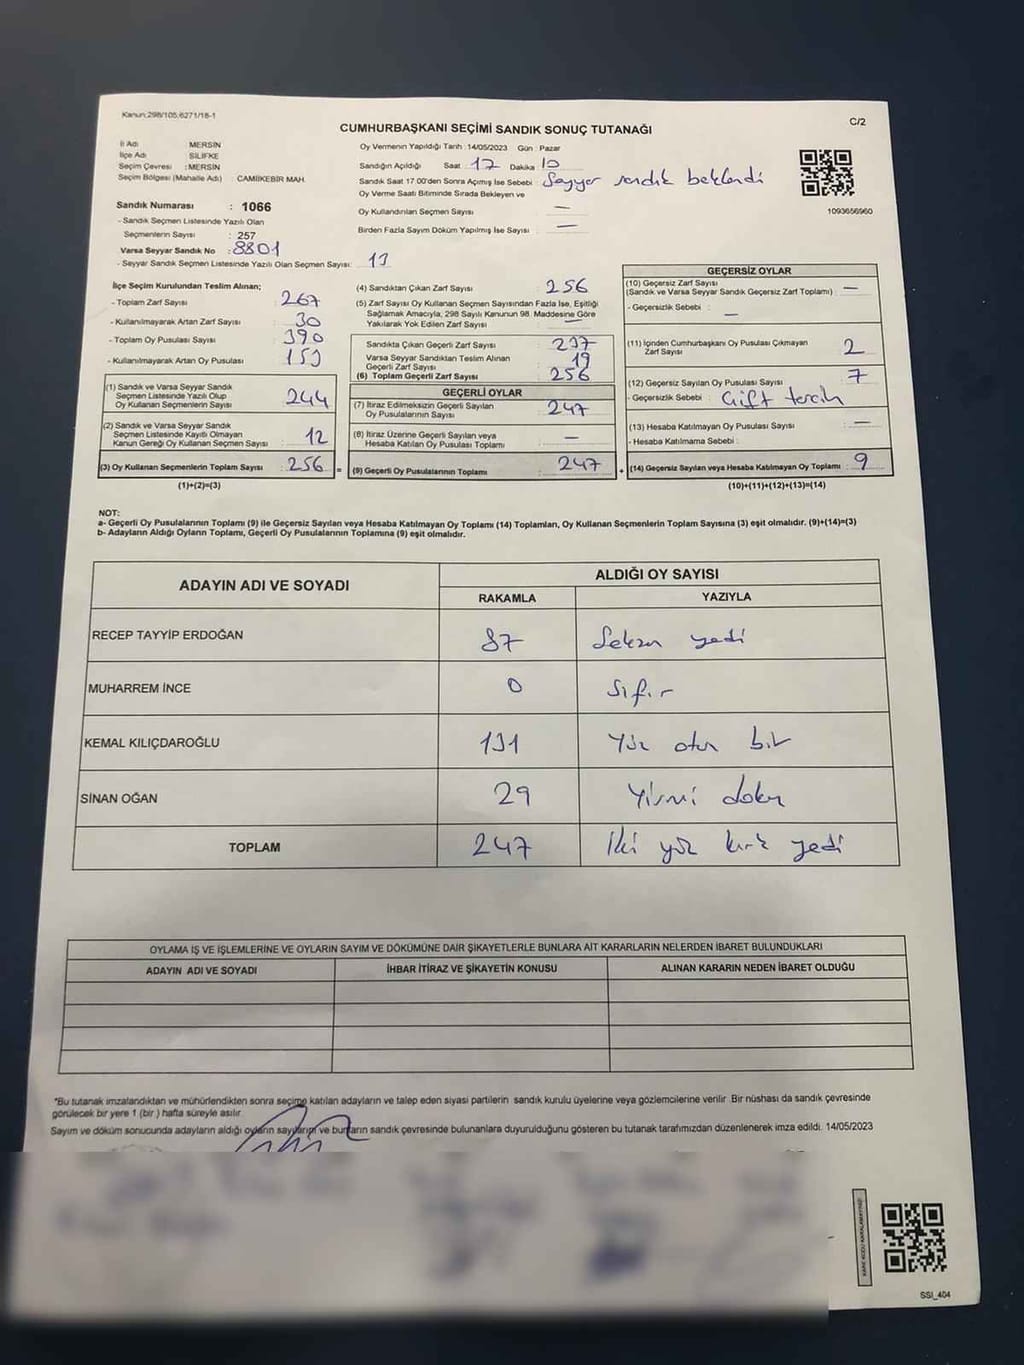 Kanun:298/105,6271/18-1
C/2
CUMHURBAŞKANI SEÇİMİ SANDIK SONUÇ TUTANAĞI
İl Adı : MERSİN
İlçe Adı : SİLİFKE
Seçim Çevresi : MERSİN
Seçim Bölgesi (Mahalle Adı) : CAMİİKEBİR MAH.
Sandık Numarası : 1066
- Sandık Seçmen Listesinde Yazılı Olan
Seçmenlerin Sayısı : 257
Varsa Seyyar Sandık No : 8801
- Seyyar Sandık Seçmen Listesinde Yazılı Olan Seçmen Sayısı: 11
Oy Vermenin Yapıldığı Tarih :14/05/2023 Gün : Pazar
Sandığın Açıldığı Saat : 17 Dakika : 10
Sandık Saat 17:00'den Sonra Açımış İse Sebebi : Seyyar sandık beklendi
Oy Verme Saati Bitiminde Sırada Bekleyen ve
Oy Kullandırılan Seçmen Sayısı : —
Birden Fazla Sayım Döküm Yapılmış İse Sayısı : —
1093656960
İlçe Seçim Kurulundan Teslim Alınan;
- Toplam Zarf Sayısı : 267
- Kullanılmayarak Artan Zarf Sayısı : 30
- Toplam Oy Pusulası Sayısı : 390
- Kullanılmayarak Artan Oy Pusulası : 153
(1) Sandık ve Varsa Seyyar Sandık
Seçmen Listesinde Yazılı Olup
Oy Kullanan Seçmenlerin Sayısı : 244
(2) Sandık ve Varsa Seyyar Sandık
Seçmen Listesinde Kayıtlı Olmayan
Kanun Gereği Oy Kullanan Seçmen Sayısı : 12
(3) Oy Kullanan Seçmenlerin Toplam Sayısı : 256 =
(1)+(2)=(3)
(4) Sandıktan Çıkan Zarf Sayısı : 256
(5) Zarf Sayısı Oy Kullanan Seçmen Sayısından Fazla İse, Eşitliği
Sağlamak Amacıyla, 298 Sayılı Kanunun 98. Maddesine Göre
Yakılarak Yok Edilen Zarf Sayısı : —
Sandıkta Çıkan Geçerli Zarf Sayısı : 237
Varsa Seyyar Sandıktan Teslim Alınan
Geçerli Zarf Sayısı : 19
(6) Toplam Geçerli Zarf Sayısı : 256
GEÇERLİ OYLAR
(7) İtiraz Edilmeksizin Geçerli Sayılan
Oy Pusulalarının Sayısı : 247
(8) İtiraz Üzerine Geçerli Sayılan veya
Hesaba Katılan Oy Pusulası Toplamı : —
(9) Geçerli Oy Pusulalarının Toplamı : 247 +
GEÇERSİZ OYLAR
(10) Geçersiz Zarf Sayısı
(Sandık ve Varsa Seyyar Sandık Geçersiz Zarf Toplamı) : —
- Geçersizlik Sebebi : —
(11) İçinden Cumhurbaşkanı Oy Pusulası Çıkmayan
Zarf Sayısı : 2
(12) Geçersiz Sayılan Oy Pusulası Sayısı : 7
- Geçersizlik Sebebi : Çift tercih
(13) Hesaba Katılmayan Oy Pusulası Sayısı : —
- Hesaba Katılmama Sebebi :
(14) Geçersiz Sayılan veya Hesaba Katılmayan Oy Toplamı : 9
(10)+(11)+(12)+(13)=(14)
NOT:
a- Geçerli Oy Pusulalarının Toplamı (9) ile Geçersiz Sayılan veya Hesaba Katılmayan Oy Toplamı (14) Toplamları, Oy Kullanan Seçmenlerin Toplam Sayısına (3) eşit olmalıdır. (9)+(14)=(3)
b- Adayların Aldığı Oyların Toplamı, Geçerli Oy Pusulalarının Toplamına (9) eşit olmalıdır.
ADAYIN ADI VE SOYADI ALDIĞI OY SAYISI
RAKAMLA YAZIYLA
RECEP TAYYİP ERDOĞAN 87 Seksen yedi
MUHARREM İNCE 0 Sıfır
KEMAL KILIÇDAROĞLU 131 Yüz otuz bir
SİNAN OĞAN 29 Yirmi dokuz
TOPLAM 247 İki yüz kırk yedi
OYLAMA İŞ VE İŞLEMLERİNE VE OYLARIN SAYIM VE DÖKÜMÜNE DAİR ŞİKAYETLERLE BUNLARA AİT KARARLARIN NELERDEN İBARET BULUNDUKLARI
ADAYIN ADI VE SOYADI İHBAR İTİRAZ VE ŞİKAYETİN KONUSU ALINAN KARARIN NEDEN İBARET OLDUĞU
"Bu tutanak imzalandıktan ve mühürlendikten sonra seçime katılan adayların ve talep eden siyasi partilerin sandık kurulu üyelerine veya gözlemcilerine verilir. Bir nüshası da sandık çevresinde
görülecek bir yere 1 (bir ) hafta süreyle asılır.
Sayım ve döküm sonucunda adayların aldığı oyların sayılarını ve bunların sandık çevresinde bulunanlara duyurulduğunu gösteren bu tutanak tarafımızdan düzenlenerek imza edildi. 14/05/2023
SSI_404